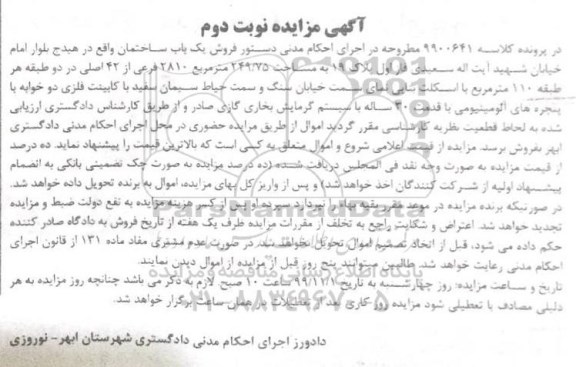 آگهی مزایده نوبت دوم
در پرونده کلاسه ۹۹۰۰۶۴۱ مطروحه در اجرای احکام مدنی دستور فروش یک باب ساختمان واقع در هیدج بلوار امام
خیابان شهید آیت اله سعیدی فاز اول پلاک ۱۹ به مساحت ۲۴۹/۷۵ مترمربع ۲۸۱۰ فرعی از ۴۲ اصلی در دو طبقه هر
طبقه ۱۱۰ مترمربع با اسکلت بنایی نمای سمت خیابان سنگ و سمت حیاط سیمان سفید با کابینت فلزی دو خوابه با
پنجره های آلومینیومی با قدمت ۳۰ ساله با سیستم گرمایش بخاری گازی صادر و از طریق کارشناس دادگستری ارزیابی
شده به لحاظ قطعیت نظریه کارشناسی مقرر گردید اموال از طریق مزایده حضوری در محل اجرای احکام مدنی دادگستری
ابهر بفروش برسد. مزایده از قیمت اعلامی شروع و اموال متعلق به کسی است که بالاترین قیمت را پیشنهاد نماید. ده درصد
از قیمت مزایده به صورت وجه نقد فی المجلس دریافت شده (ده درصد مزایده به صورت چک تضمینی بانکی به انضمام
پیشنهاد اولیه از شرکت کنندگان اخذ خواهد شد) و پس از واریز کل بهای مزایده، اموال به برنده تحویل داده خواهد شد.
در صورتیکه برنده مزایده در موعد مقرر بقیه بهای را نپردازد سپرده اولیه پس از کسر هزینه مزایده به نفع دولت ضبط و مزایده
تجدید خواهد شد. اعتراض و شکایت راجع به تخلف از مقررات مزایده ظرف یک هفته از تاریخ فروش به دادگاه صادر کننده
حکم داده می شود، قبل از اتخاذ تصمیم اموال تحویل نخواهد شد. در صورت عدم مشتری مفاد ماده ۱۳۱ از قانون اجرای
احکام مدنی رعایت خواهد شد. طالبین میتوانند پنج روز قبل از مزایده از اموال دیدن نمایند.
تاریخ و ساعت مزایده: روز چهارشنبه به تاریخ ۹۹/۱۲/۱ ساعت ۱۰ صبح. لازم به ذکر می باشد چنانچه روز مزایده به هر
دلیلی مصادف با تعطیلی شود مزایده روز کاری بعد از تعطیلات در همان ساعت برگزار خواهد شد.
دادورز اجرای احکام مدنی دادگستری شهرستان ابهر- نوروزی
ParsNamadData
پایگاه اطلاع رسانی مناقصه و مزایده